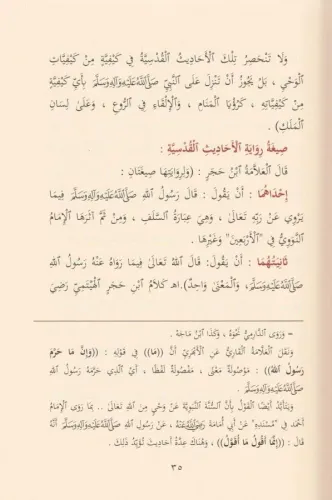 وَلَا تَنْحَصِرُ تِلْكَ الْأَحَادِيثُ الْقُدْسِيَّةُ فِي كَيْفِيَّةٍ مِنْ كَيْفِيَّاتِ
الْوَحْيِ ، بَلْ يَجُوزُ أَنْ تَنْزِلَ عَلَى النَّبِيِّ صَلَّى اللَّهُ عَلَيْهِ وَآلِهِ وَسَلَّمَ بِأَيِّ كَيْفِيَّةٍ
مِنْ كَيْفِيَّاتِهِ ، كَرُؤْيَا الْمَنَامِ ، وَالْإِلْقَاءِ فِي الرُّوعِ ، وَعَلَى لِسَانِ
الْمَلَكِ) .
صِيغَةُ رِوَايَةِ الْأَحَادِيثِ الْقُدْسِيَّةِ :
قَالَ الْعَلَّامَةُ ابْنُ حَجَرٍ : (وَلِرِوَايَتِهَا صِيغَتَانِ :
إِحْدَاهُمَا : أَنْ يَقُولَ : قَالَ رَسُولُ اللَّهِ صَلَّى اللَّهُ عَلَيْهِ وَآلِهِ وَسَلَّمَ فِيمَا
يَرْوِي عَنْ رَبِّهِ تَعَالَى ، وَهِيَ عِبَارَةُ السَّلَفِ ، وَمِنْ ثَمَّ آثَرَهَا الْإِمَامُ
النَّوَوِيُّ فِي "الْأَرْبَعِينَ" وَغَيْرِهَا .
ثَانِيَتُهُمَا : أَنْ يَقُولَ: قَالَ اللَّهُ تَعَالَى فِيمَا رَوَاهُ عَنْهُ رَسُولُ اللَّهِ
صَلَّى اللَّهُ عَلَيْهِ وَآلِهِ وَسَلَّمَ، وَالْمَعْنَى وَاحِدٌ).اهـ كَلَامُ ابْنِ حَجَرٍ الْهَيْتَمِيِّ رَضِيَ
= وَرَوَى الدَّارِمِيُّ نَحْوَهُ ، وَكَذَا ابْنُ مَاجَهْ .
وَنَقَلَ الْعَلَّامَةُ الْقَارِي عَنِ الْأَبْهَرِيِّ أَنَّ ((مَا)) فِي قَوْلِهِ : ((وَإِنَّ مَا حَرَّمَ
رَسُولُ اللَّهِ)) : مَوْصُولَةٌ مَعْنًى ، مَفْصُولَةٌ لَفْظًا ، أَيِ الَّذِي حَرَّمَهُ رَسُولُ اللَّهِ
صَلَّى اللَّهُ عَلَيْهِ وَآلِهِ وَسَلَّمَ .
وَيَتَأَيَّدُ أَيْضًا الْقَوْلُ بِأَنَّ السُّنَّةَ النَّبَوِيَّةَ عَنْ وَحْيٍ مِنَ اللَّهِ تَعَالَى .. بِمَا رَوَى الْإِمَامُ
أَحْمَدُ فِي "مُسْنَدِهِ" عَنْ أَبِي أُمَامَةَ رَضِيَ اللَّهُ عَنْهُ ، عَنْ رَسُولِ اللَّهِ صَلَّى اللَّهُ عَلَيْهِ وَآلِهِ وَسَلَّمَ أَنَّهُ
قَالَ : ((إِنَّمَا أَقُولُ مَا أُقَوَّلُ)) ، وَهُنَاكَ عِدَّةُ أَحَادِيثَ تُؤَيِّدُ ذَلِكَ .
٣٥